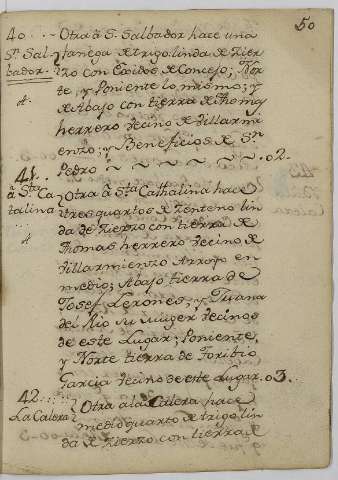 50
40 Otra â S. Salbador hace una
Sn. Sal- fanega de trigo linda de Zier-
bador. zo con Exidos de Conzejo; Nor-
te, y Poniente lo mismo; y
A. de Abajo con tierra de Thomas
herrero Vecino de Villarmi-
enzo; y Beneficios de Sn.
Pedro ~ ~ ~ ~ ~ ~ 02.
41. Otra â Sta. Cathalina hace
â Sta. Ca- tres quartos de Zenteno lin-
talina da de Zierzo con tierra de
A Thomas herrero Vecino de
Villarmienzo Arroyo en
medio; Abajo tierra de
Josef Lerones, y Juana
del Rio su muger Vecinos
de este Lugar; Poniente,
y Norte tierra de Toribio
Garcia Vecino de este Lugar. 03.
42. Otra a la Calera hace
La Calera medio quarto de trigo lin-
da de Zierzo con tierra de